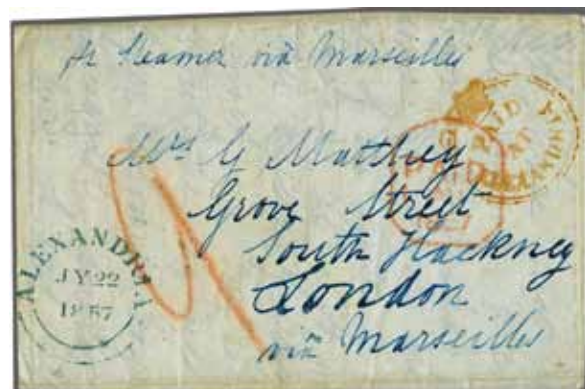 Pr Steamer via Marseilles
PAID
AT
ALEXANDRIA
Mrs G Matthey
Grove Street
South Hackney
London
via Marseilles
9
ALEXANDRIA
JY 22
1857